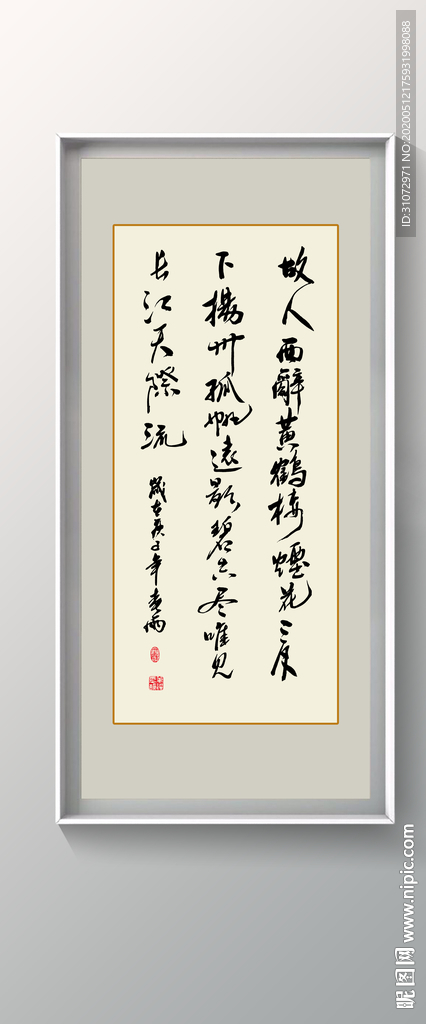 故人西辭黃鶴樓煙花三月
下揚州孤帆遠影碧空尽唯見
長江天際流
歲在庚子年春雨
ID:31072971 NO:20200512175931998088
昵图网 www.nipic.com